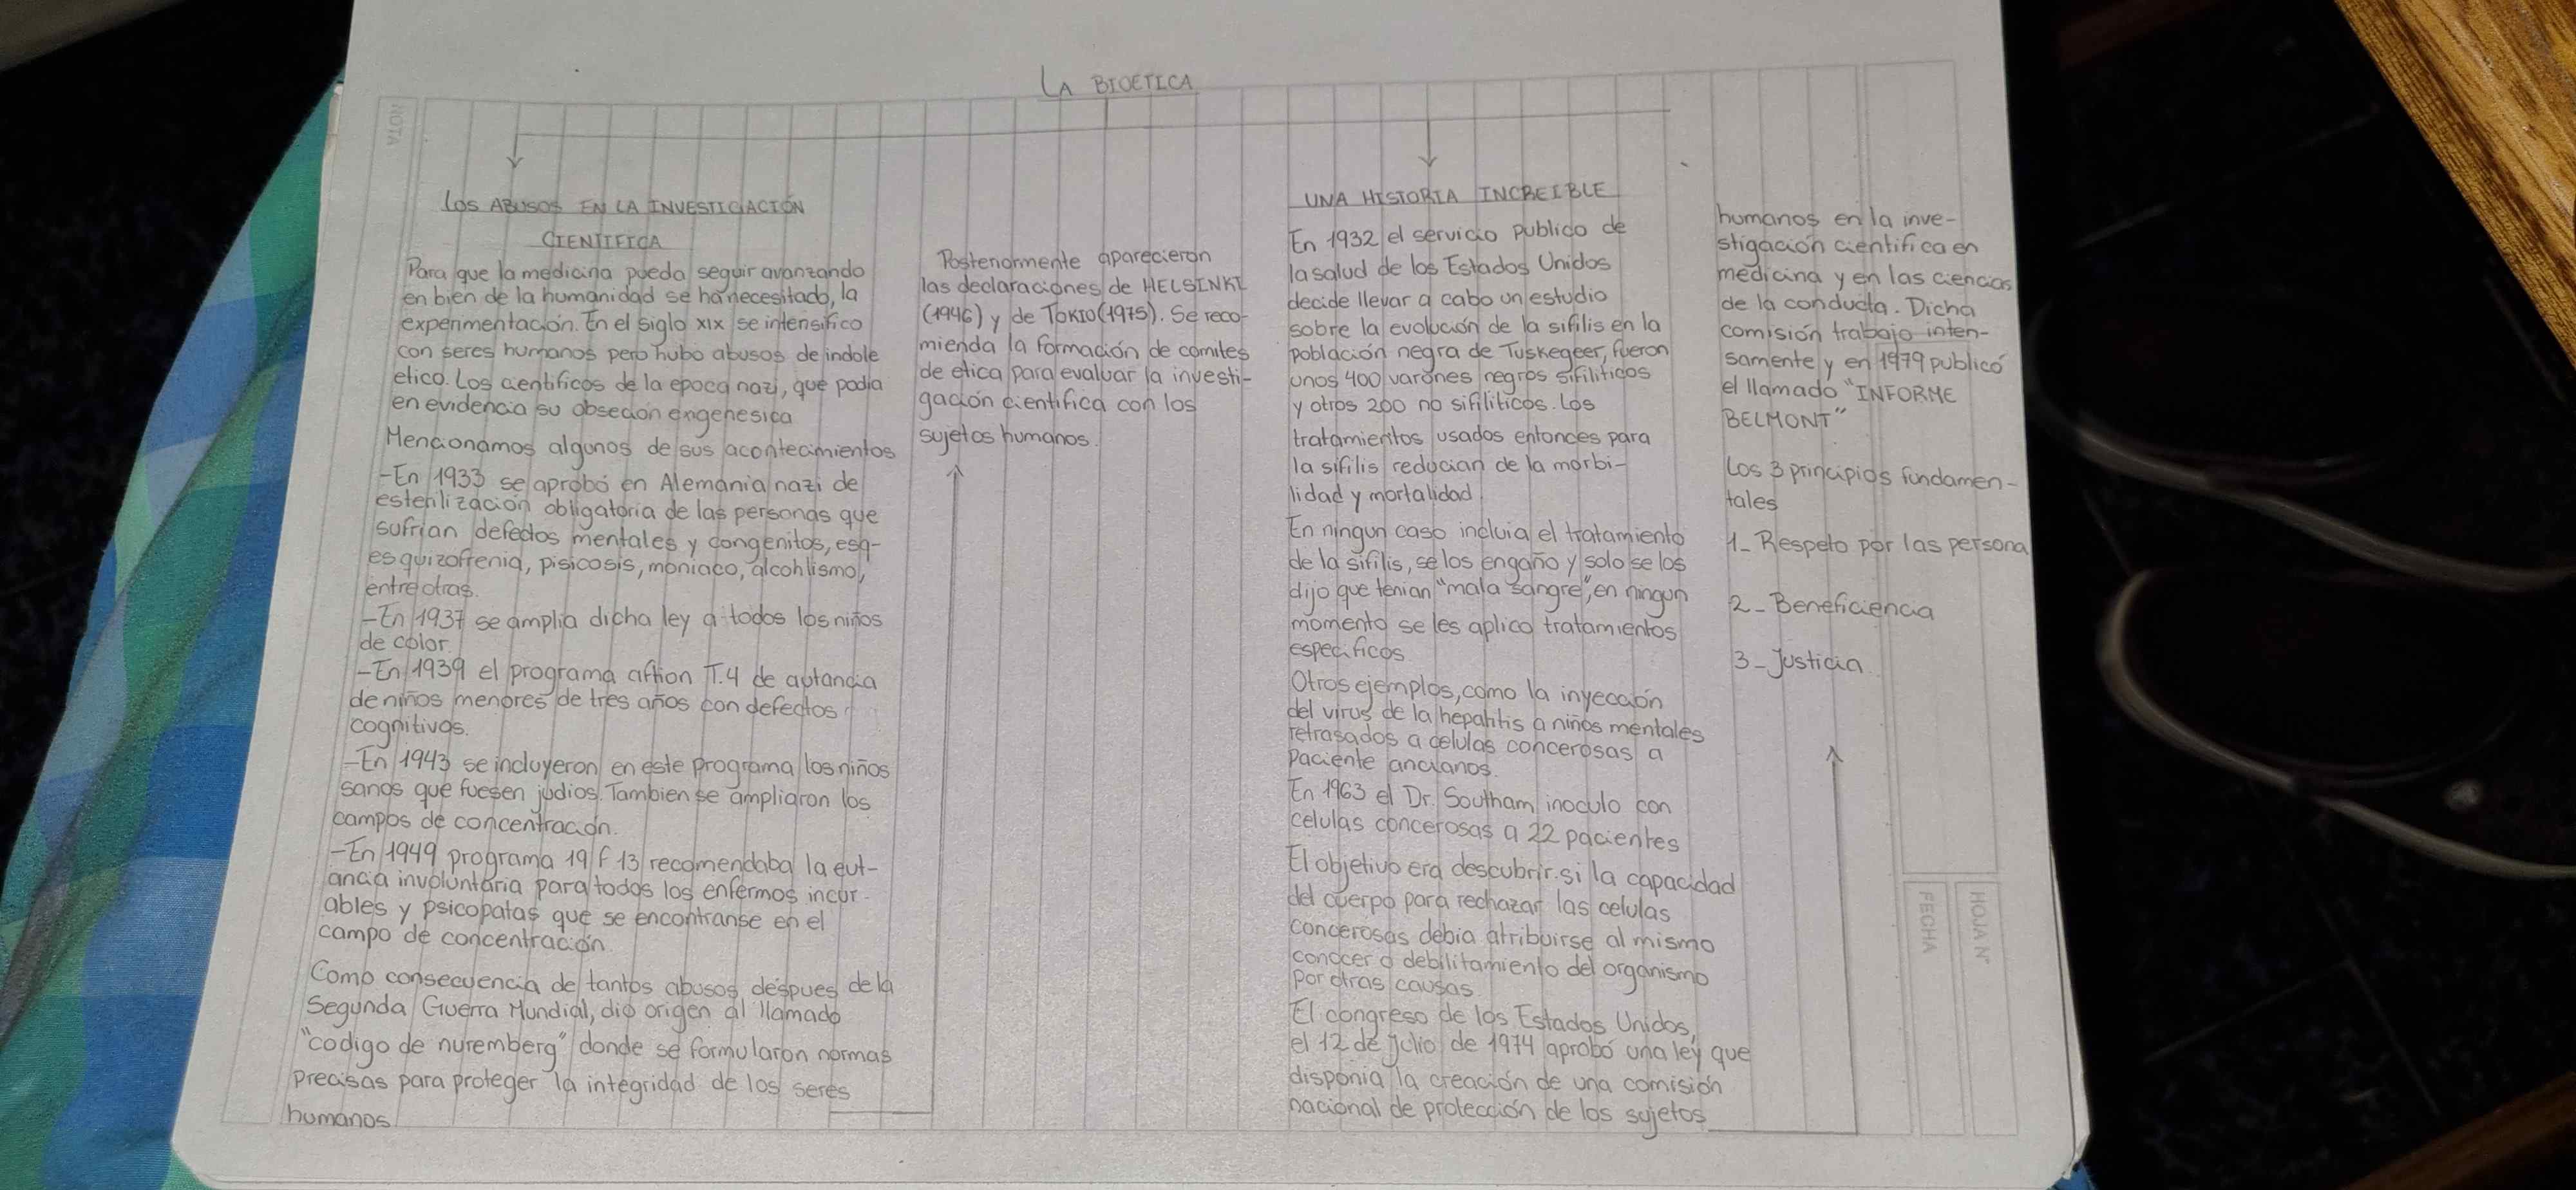 LA BIOETICA
NOTA
LOS ABUSOS EN LA INVESTIGACIÓN
CIENTIFICA
Para que la medicina pueda seguir avanzando
en bien de la humanidad se ha necesitado, la
experimentación. En el siglo XIX se intensifico
con seres humanos pero hubo abusos de indole
etico. Los cientificos de la epoca nazi, que podia
en evidencia su obseción engenesica
Mencionamos algunos de sus acontecimientos
-En 1933 se aprobó en Alemania nazi de
esterilización obligatoria de las personas que
sufrian defectos mentales y congenitos, esq-
esquizofrenia, pisicosis, moniaco, alcohlismo,
entre otras.
-En 1937 se amplia dicha ley a todos los niños
de color.
-En 1939 el programa aftion T.4 de autancia
de niños menores de tres años con defectos
cognitivos.
-En 1943 se incluyeron en este programa los niños
sanos que fuesen judios. Tambien se ampliaron los
campos de concentración.
-En 1949 programa 19 F 13 recomendaba la eut-
ancia involuntaria para todos los enfermos incur-
ables y psicopatas que se encontranse en el
campo de concentración.
Como consecuencia de tantos abusos despues de la
Segunda Guerra Mundial, dio origen al llamado
"codigo de nuremberg" donde se formularon normas
precisas para proteger la integridad de los seres
humanos.
Posteriormente aparecieron
las declaraciones de HELSINKI
(1946) y de TOKIO (1975). Se reco-
mienda la formación de comites
de etica para evaluar la investi-
gación cientifica con los
sujetos humanos.
UNA HISTORIA INCREIBLE
En 1932 el servicio publico de
la salud de los Estados Unidos
decide llevar a cabo un estudio
sobre la evolución de la sifilis en la
población negra de Tuskegeer, fueron
unos 400 varones negros sifiliticos
y otros 200 no sifiliticos. Los
tratamientos usados entonces para
la sifilis reducian de la morbi-
lidad y mortalidad.
En ningun caso incluia el tratamiento
de la sifilis, se los engaño y solo se los
dijo que tenian "mala sangre", en ningun
momento se les aplico tratamientos
especificos
Otros ejemplos, como la inyección
del virus de la hepatitis a niños mentales
retrasados a celulas concerosas a
paciente ancianos.
En 1963 el Dr. Southam inoculo con
celulas concerosas a 22 pacientes
El objetivo era descubrir si la capacidad
del cuerpo para rechazar las celulas
concerosas debia atribuirse al mismo
concer o debilitamiento del organismo
por otras causas.
El congreso de los Estados Unidos,
el 12 de Julio de 1974 aprobó una ley que
disponia la creación de una comisión
nacional de protección de los sujetos
humanos en la inve-
stigación cientifica en
medicina y en las ciencias
de la conducta. Dicha
comisión trabajo inten-
samente y en 1979 publicó
el llamado "INFORME
BELMONT"
Los 3 principios fundamen-
tales
1- Respeto por las persona
2- Beneficiencia
3- Justicia
FECHA
HOJA N°